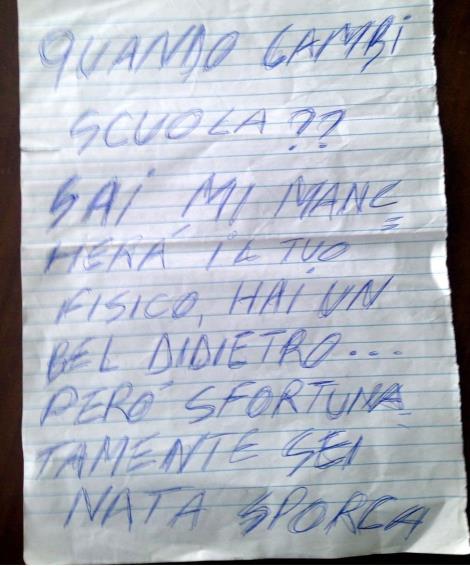 QUANDO CAMBI
SCUOLA??
SAI MI MANC
HERÁ IL TUO
FISICO, HAI UN
BEL DIDIETRO...
PERÓ SFORTUNA
TAMENTE SEI
NATA SPORCA